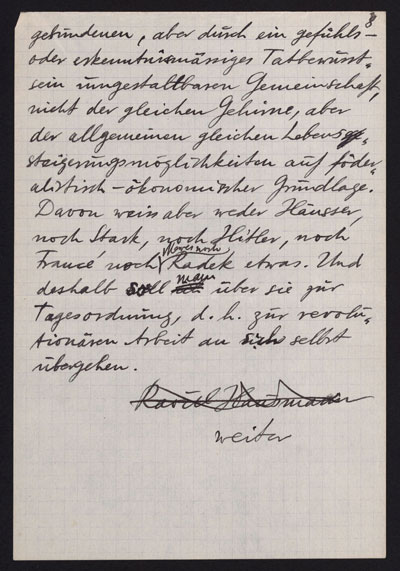 8
gebundenen, aber durch ein gefühls-
oder erkenntnismässiges Tatbewusst-
sein umgestaltbaren Gemeinschaft,
nicht der gleichen Gehirne, aber
der allgemeinen gleichen Lebensge-
steigerungsmöglichkeiten auf föder-
alistisch-ökonomischer Grundlage.
Davon weiss aber weder Häusser,
noch Stark, noch Hitler, noch
Francé, noch Radek etwas. Und
deshalb soll man über sie zur
Tagesordnung, d. h. zur revolu-
tionären Arbeit an sich selbst
übergehen.
Raoul Hausmann
weiter